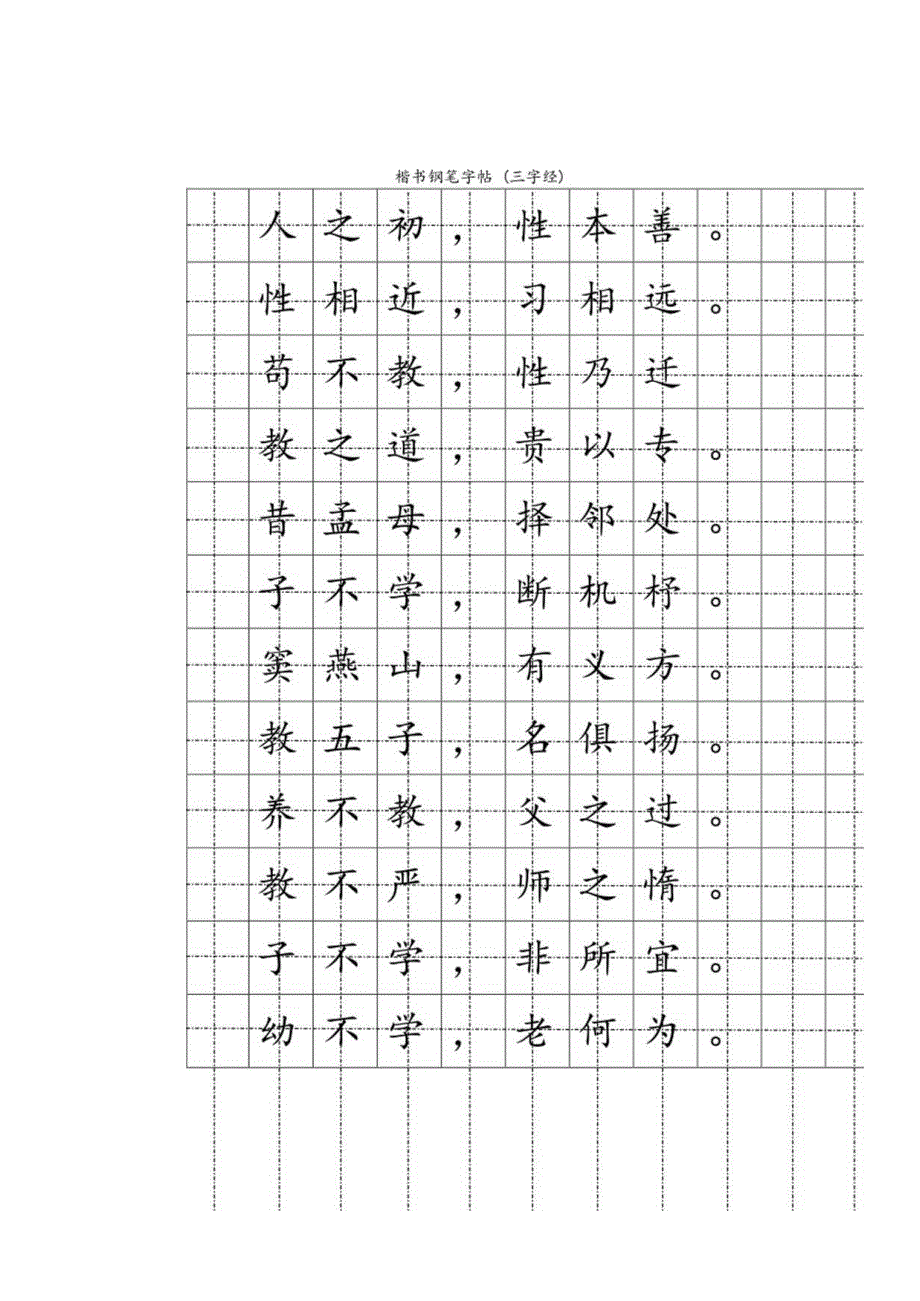 楷书钢笔字帖 (三字经)
人之初，性本善。
性相近，习相远。
苟不教，性乃迁
教之道，贵以专。
昔孟母，择邻处。
子不学，断机杼。
窦燕山，有义方。
教五子，名俱扬。
养不教，父之过。
教不严，师之惰。
子不学，非所宜。
幼不学，老何为。